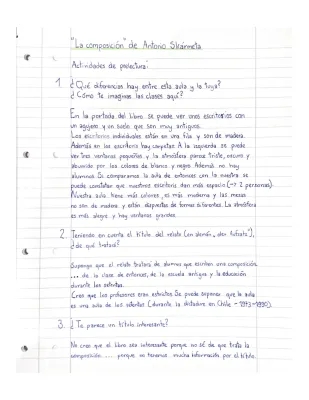 "La composición" de Antonio Skármeta
Actividades de prelectura:
1. ¿Qué diferencias hay entre esta aula y la tuya?
¿Cómo te imaginas las clases aquí?
En la portada del libro se puede ver unos escritorios con
un agujero y un suelo que son muy antiguos.
Los escritorios individuales están en una fila y son de madera.
Además en los escritorios hay carpetas. A la izquierda se puede
ver tres ventanas pequeñas y la atmósfera parece triste, oscura y
aburrida por los colores de blanco y negro. Además no hay
alumnos. Si comparamos la aula de entonces con la nuestra se
puede constatar que nuestros escritorios dan más espacio (→ 2 personas)
Nuestra aula tiene más colores, es más moderna y las mesas
no son de madera y están de formas diferentes. La atmósfera
es más alegre y hay ventanas grandes.
2. Teniendo en cuenta el título del relato (en alemán, "der Aufsatz"),
¿de qué tratará?
Supongo que el relato tratará de alumnos que escriben una composición
... de la clase de entonces, de la escuela antigua y la educación
durante los setentas.
Creo que los profesores eran estrictos. Se puede suponer que la aula
es una aula de los setentas (durante la dictadura en Chile - 1973-1990).
3. ¿Te parece un título interesante?
No creo que el libro sea interesante porque no sé de que trata la
composición .... porque no tenemos mucha información por el título.